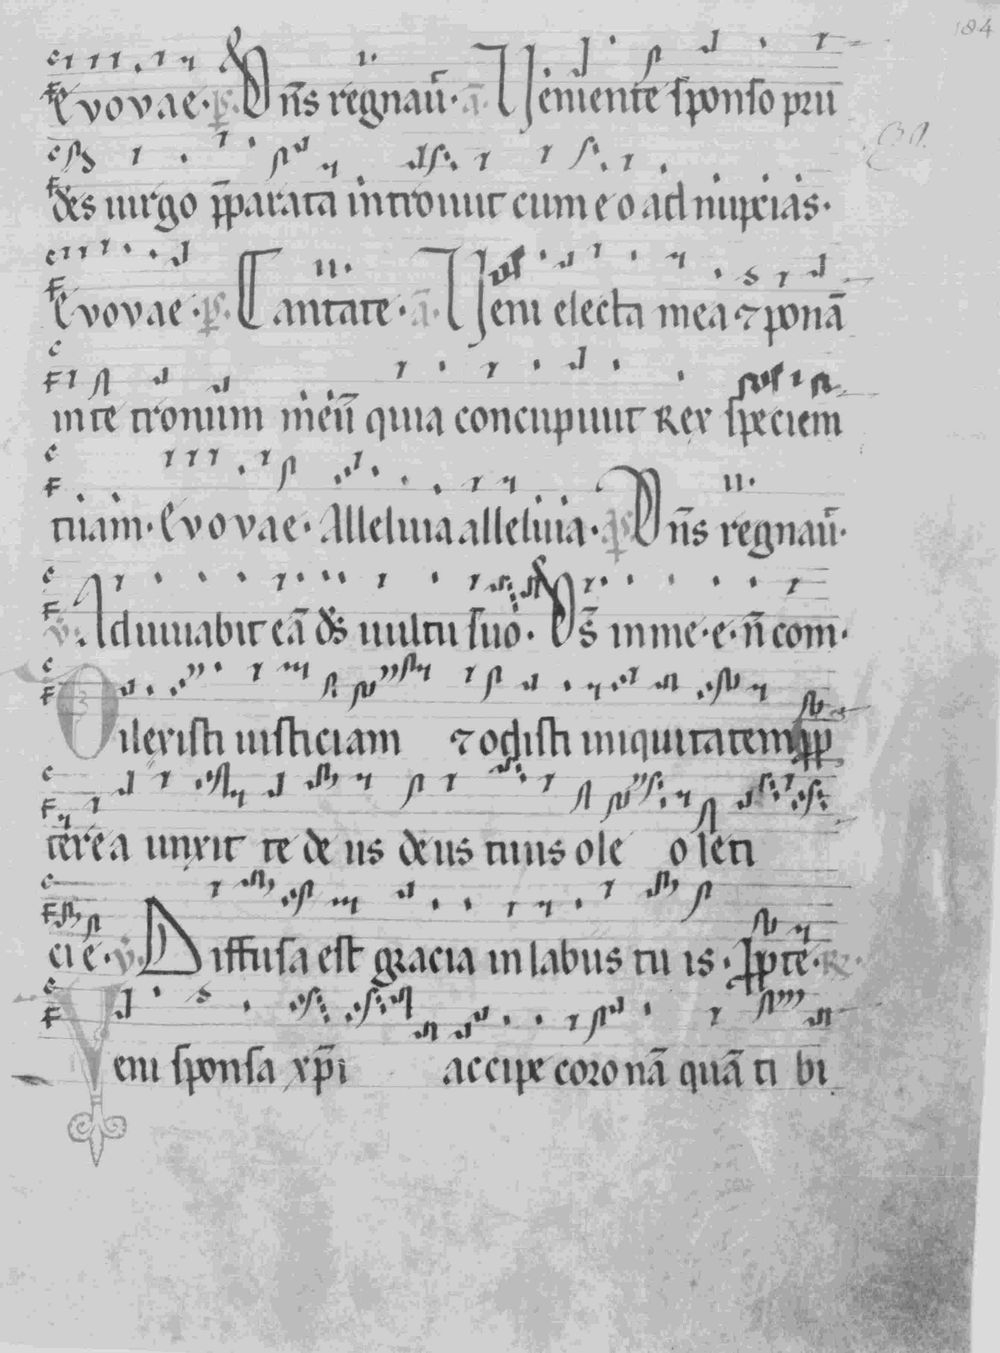 184
Evovae. ps. Dn̄s regnauit̄. a̅. Veniente sponso pru
des uirgo p̄parata introiuit cum eo ad nupcias.
Evovae. ps. Cantate. a̅. Veni electa mea ⁊ ponā
in te tronum meū quia concupiuit Rex speciem
tuam. Evovae. Alleluia alleluia. ps. Dn̄s regnaū.
v̄. Adiuuabit eā d̄s uultu suo. D̄s in me. e. n̄ com.
Dilexisti iusticiam ⁊ odisti iniquitatem ꝓp
terea unxit te deus deus tuus ole o leti
cie. v̄. Diffusa est gracia in labus tu is. ꝓpte. R.
Veni sponsa xp̄i accipe coronā quā ti bi